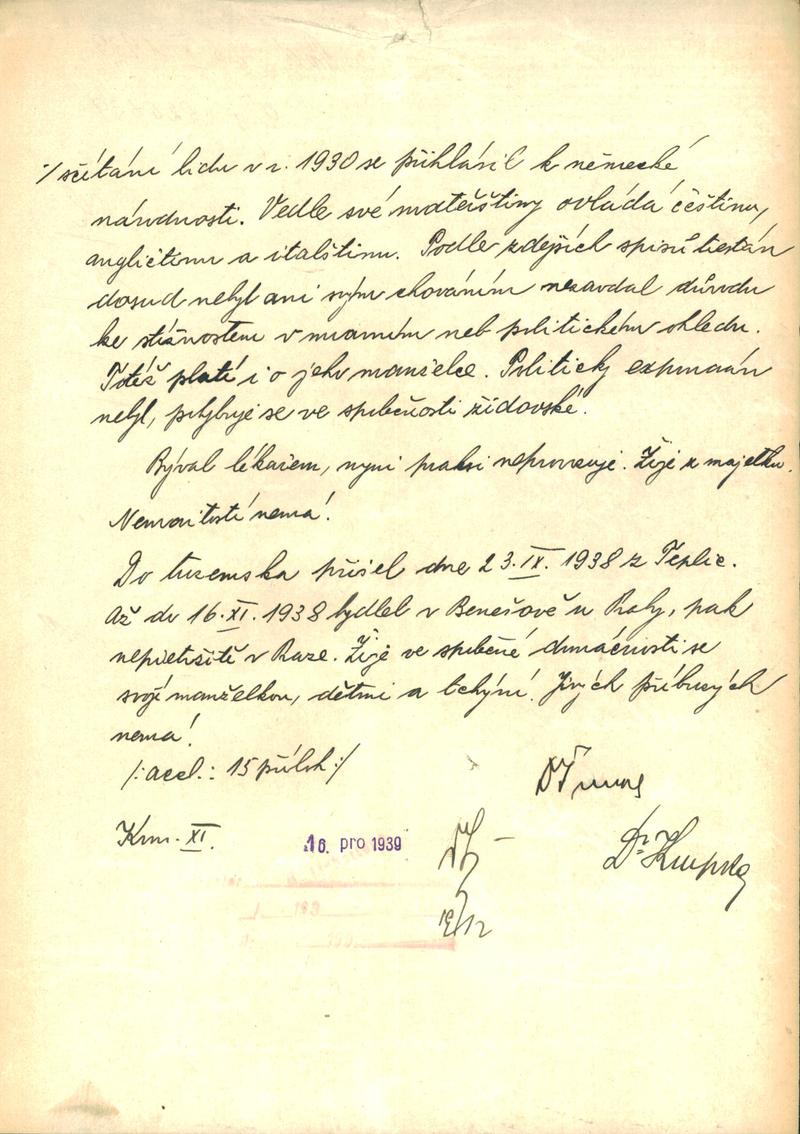 ./ sčítání lidu v r. 1930 se přihlásil k německé
národnosti. Vedle své mateřštiny ovládá češtinu,
angličtinu a italštinu. Podle zdejších spisů trestán
dosud nebyl ani svým chováním nezavdal důvodu
ke stížnostem v mravním neb politickém ohledu.
Totéž platí i o jeho manželce. Politicky exponován
nebyl, pohybuje se ve společnosti židovské.
Býval lékařem, nyní praksi neprovozuje. Žije z majetku.
Nemovitostí nemá.
Do tuzemska přišel dne 23.IX. 1938 z Teplic.
Až do 16.XI.1938 bydlel v Benešově u Prahy, pak
nepřetržitě v Praze. Žije ve společné domácnosti se
svojí manželkou, dětmi a tchýní. Jiných příbuzných
nemá.
/:accl.: 15 příloh:/
Kom. XI.
16. pro 1939
Dr Krupka
19/12